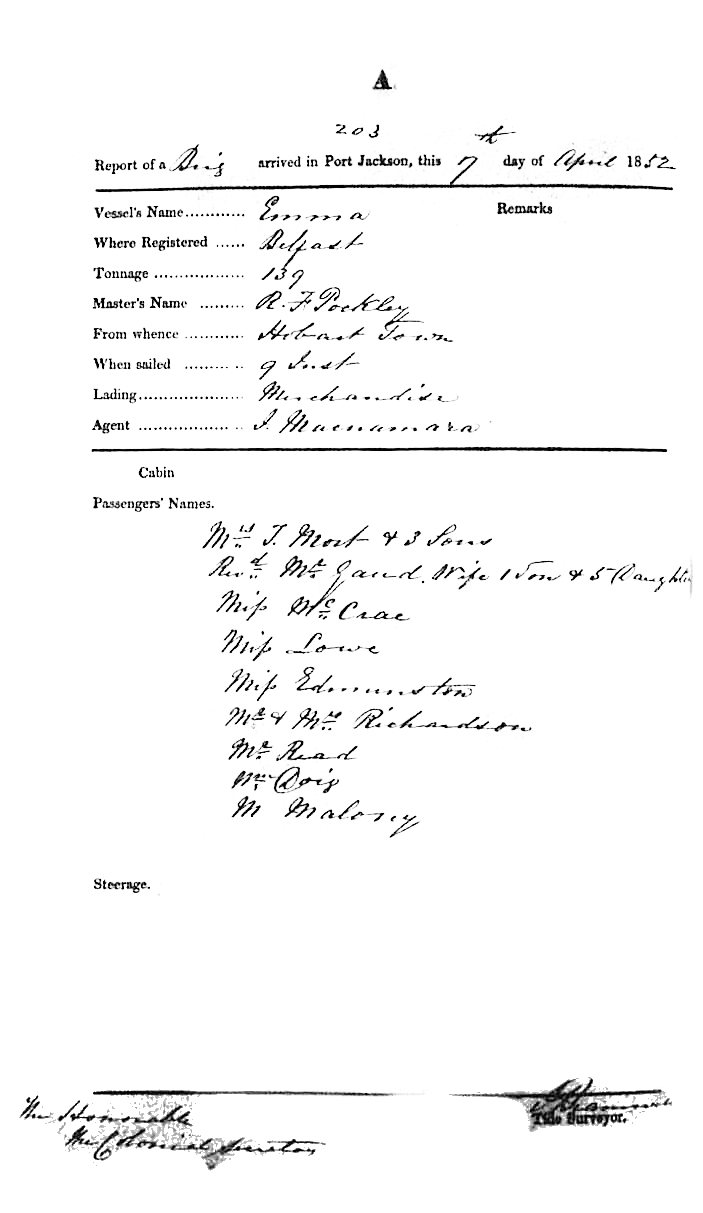 A
203
Report of a Brig arrived in Port Jackson, this 7th day of April 1852
Vessel's Name............ Emma Remarks
Where Registered ...... Belfast
Tonnage .................. 139
Master's Name ......... R. F Pockley
From whence ............ Hobart Town
When sailed ............ 9 Inst
Lading..................... Merchandise
Agent .................... J. Macnamara
Cabin
Passengers' Names.
Mrs T. Mort & 3 Sons
Revd Mr Wife 1 Son & 5 Daughters
Miss McCrae
Miss Lowe
Miss Edmunston
Mr & Mrs Richardson
Mr Read
Doig
M Maloney
Steerage.
The Honorable
The Colonial Secretary
Tide Surveyor.